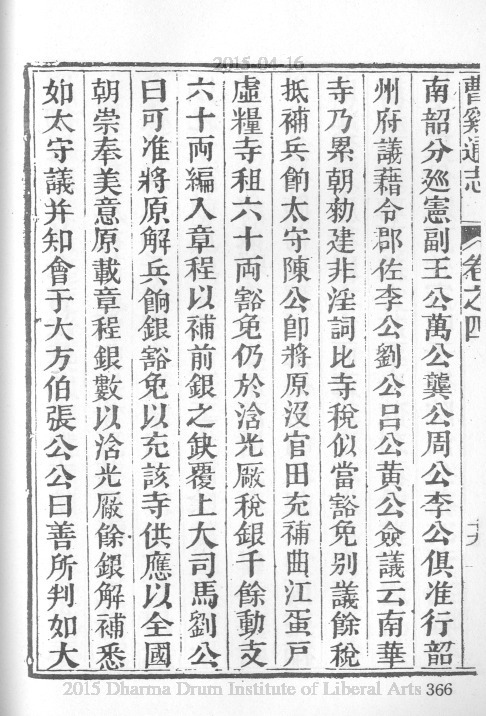 2015-04-16
曹溪通志
卷之四
南韶分廵憲副王公萬公龔公周公李公俱准行韶
州府議藉令郡佐李公劉公呂公黄公僉議云南華
寺乃累朝勑建非淫祠比寺稅似當豁免别議餘稅
抵補兵餉太守陳公卽將原没官田充補曲江蛋戸
虛糧寺租六十兩豁免仍於浛光厰稅銀千餘動支
六十兩編入章程以補前銀之缺覆上大司馬劉公
曰可准將原解兵餉銀豁免以充該寺供應以全國
朝崇奉美意原載章程銀數以浛光厰餘銀解補悉
如太守議并知會于大方伯張公公曰善所判如大
2015 Dharma Drum Institute of Liberal Arts 366